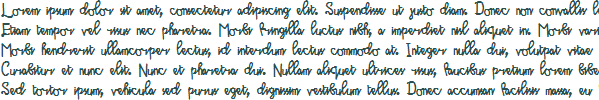 Lorem ipsum dolor sit amet, consectetur adipiscing elit. Suspendisse ut justo diam. Donec non convallis
Etiam tempor vel risus nec pharetra. Morbi fringilla luctus nibh, a imperdiet nisl aliquet in. Morbi
Morbi hendrerit ullamcorper lectus, id interdum lectus commodo at. Integer nulla dui, volutpat vitae
Curabitur et nunc elit. Nunc et pharetra dui. Nullam aliquet ultrices risus, faucibus pretium lorem
Sed tortor ipsum, vehicula sed purus eget, dignissim vestibulum tellus. Donec accumsan facilisis massa, eu